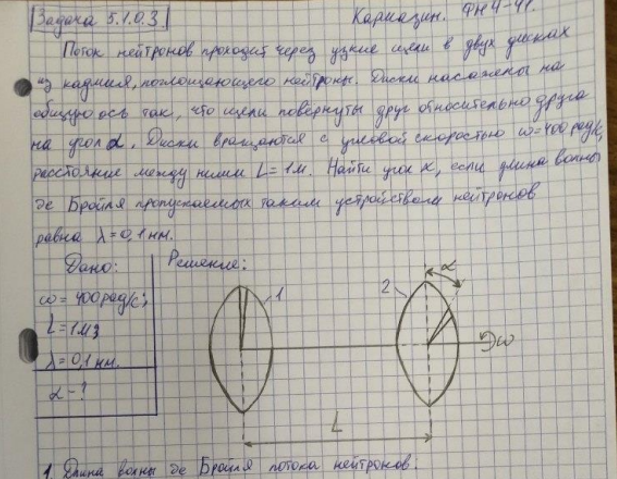 Задача 5.1.0.3.
Кармазин. ФН4-41.
Поток нейтронов проходит через узкие щели в двух дисках
из кадмия, поглощающего нейтроны. Диски насажены на
общую ось так, что щели повёрнуты друг относительно друга
на угол α. Диски вращаются с угловой скоростью ω=400 рад/с,
расстояние между ними L=1м. Найти угол α, если длина волны
де Бройля пропускаемых таким устройством нейтронов
равна λ=0,1 нм.
Дано:
ω=400рад/с;
L=1м;
λ=0,1 нм.
α-?
Решение:
1
2
α
ω
L
1. Длина волны де Бройля потока нейтронов: